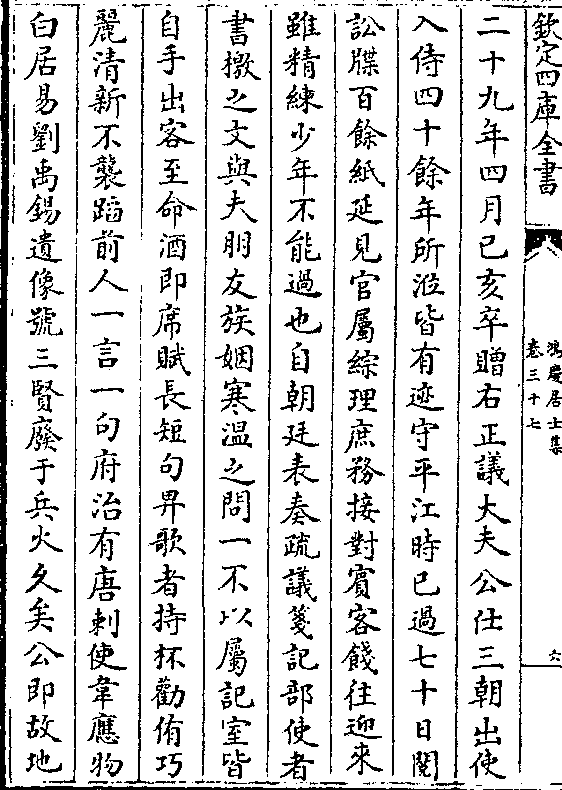 欽定四庫全書
鴻慶居士集
卷三十七
六
二十九年四月己亥卒贈右正議大夫公仕三朝出使
入侍四十餘年所涖皆有迹守平江時已過七十日閱
訟牒百餘紙延見官屬綜理庶務接對賓客餞往迎來
雖精練少年不能過也自朝廷表奏疏議箋記部使者
書檄之文與夫朋友族姻寒溫之問一不以屬記室皆
自手出客至命酒即席賦長短句畀歌者持杯勸侑巧
麗清新不襲蹈前人一言一句府治有唐刺使韋應物
白居易劉禹錫遺像號三賢廢于兵火久矣公即故地